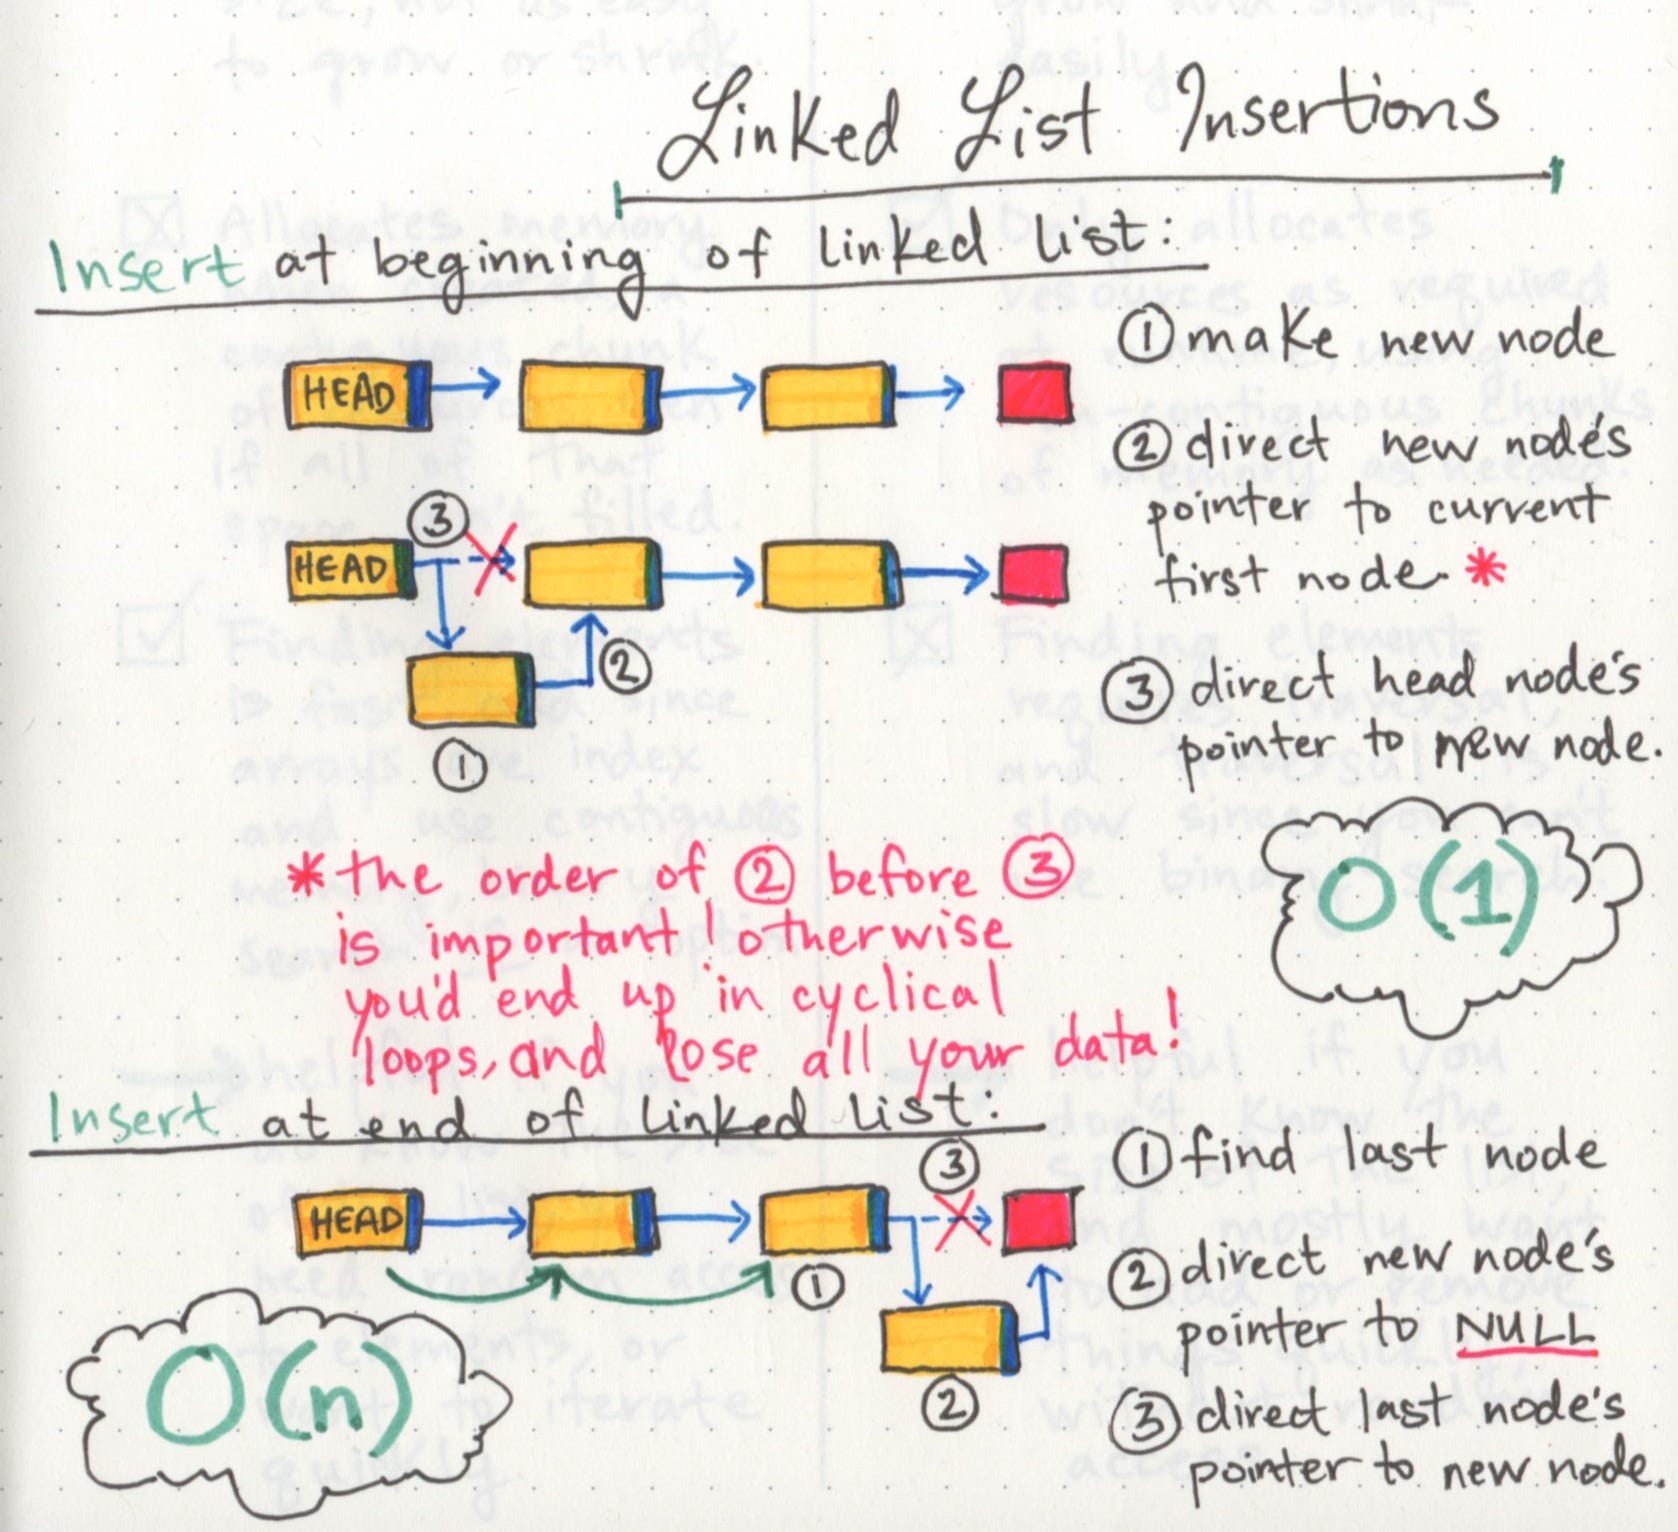 Linked List Insertions
Insert at beginning of linked list:
HEAD
① make new node
② direct new node's
pointer to current
first node. *
③ direct head node's
pointer to new node.
③
HEAD
②
①
O(1)
* the order of ② before ③
is important! otherwise
you'd end up in cyclical
loops, and lose all your data!
Insert at end of linked list:
③
HEAD
①
②
O(n)
① find last node
② direct new node's
pointer to NULL
③ direct last node's
pointer to new node.